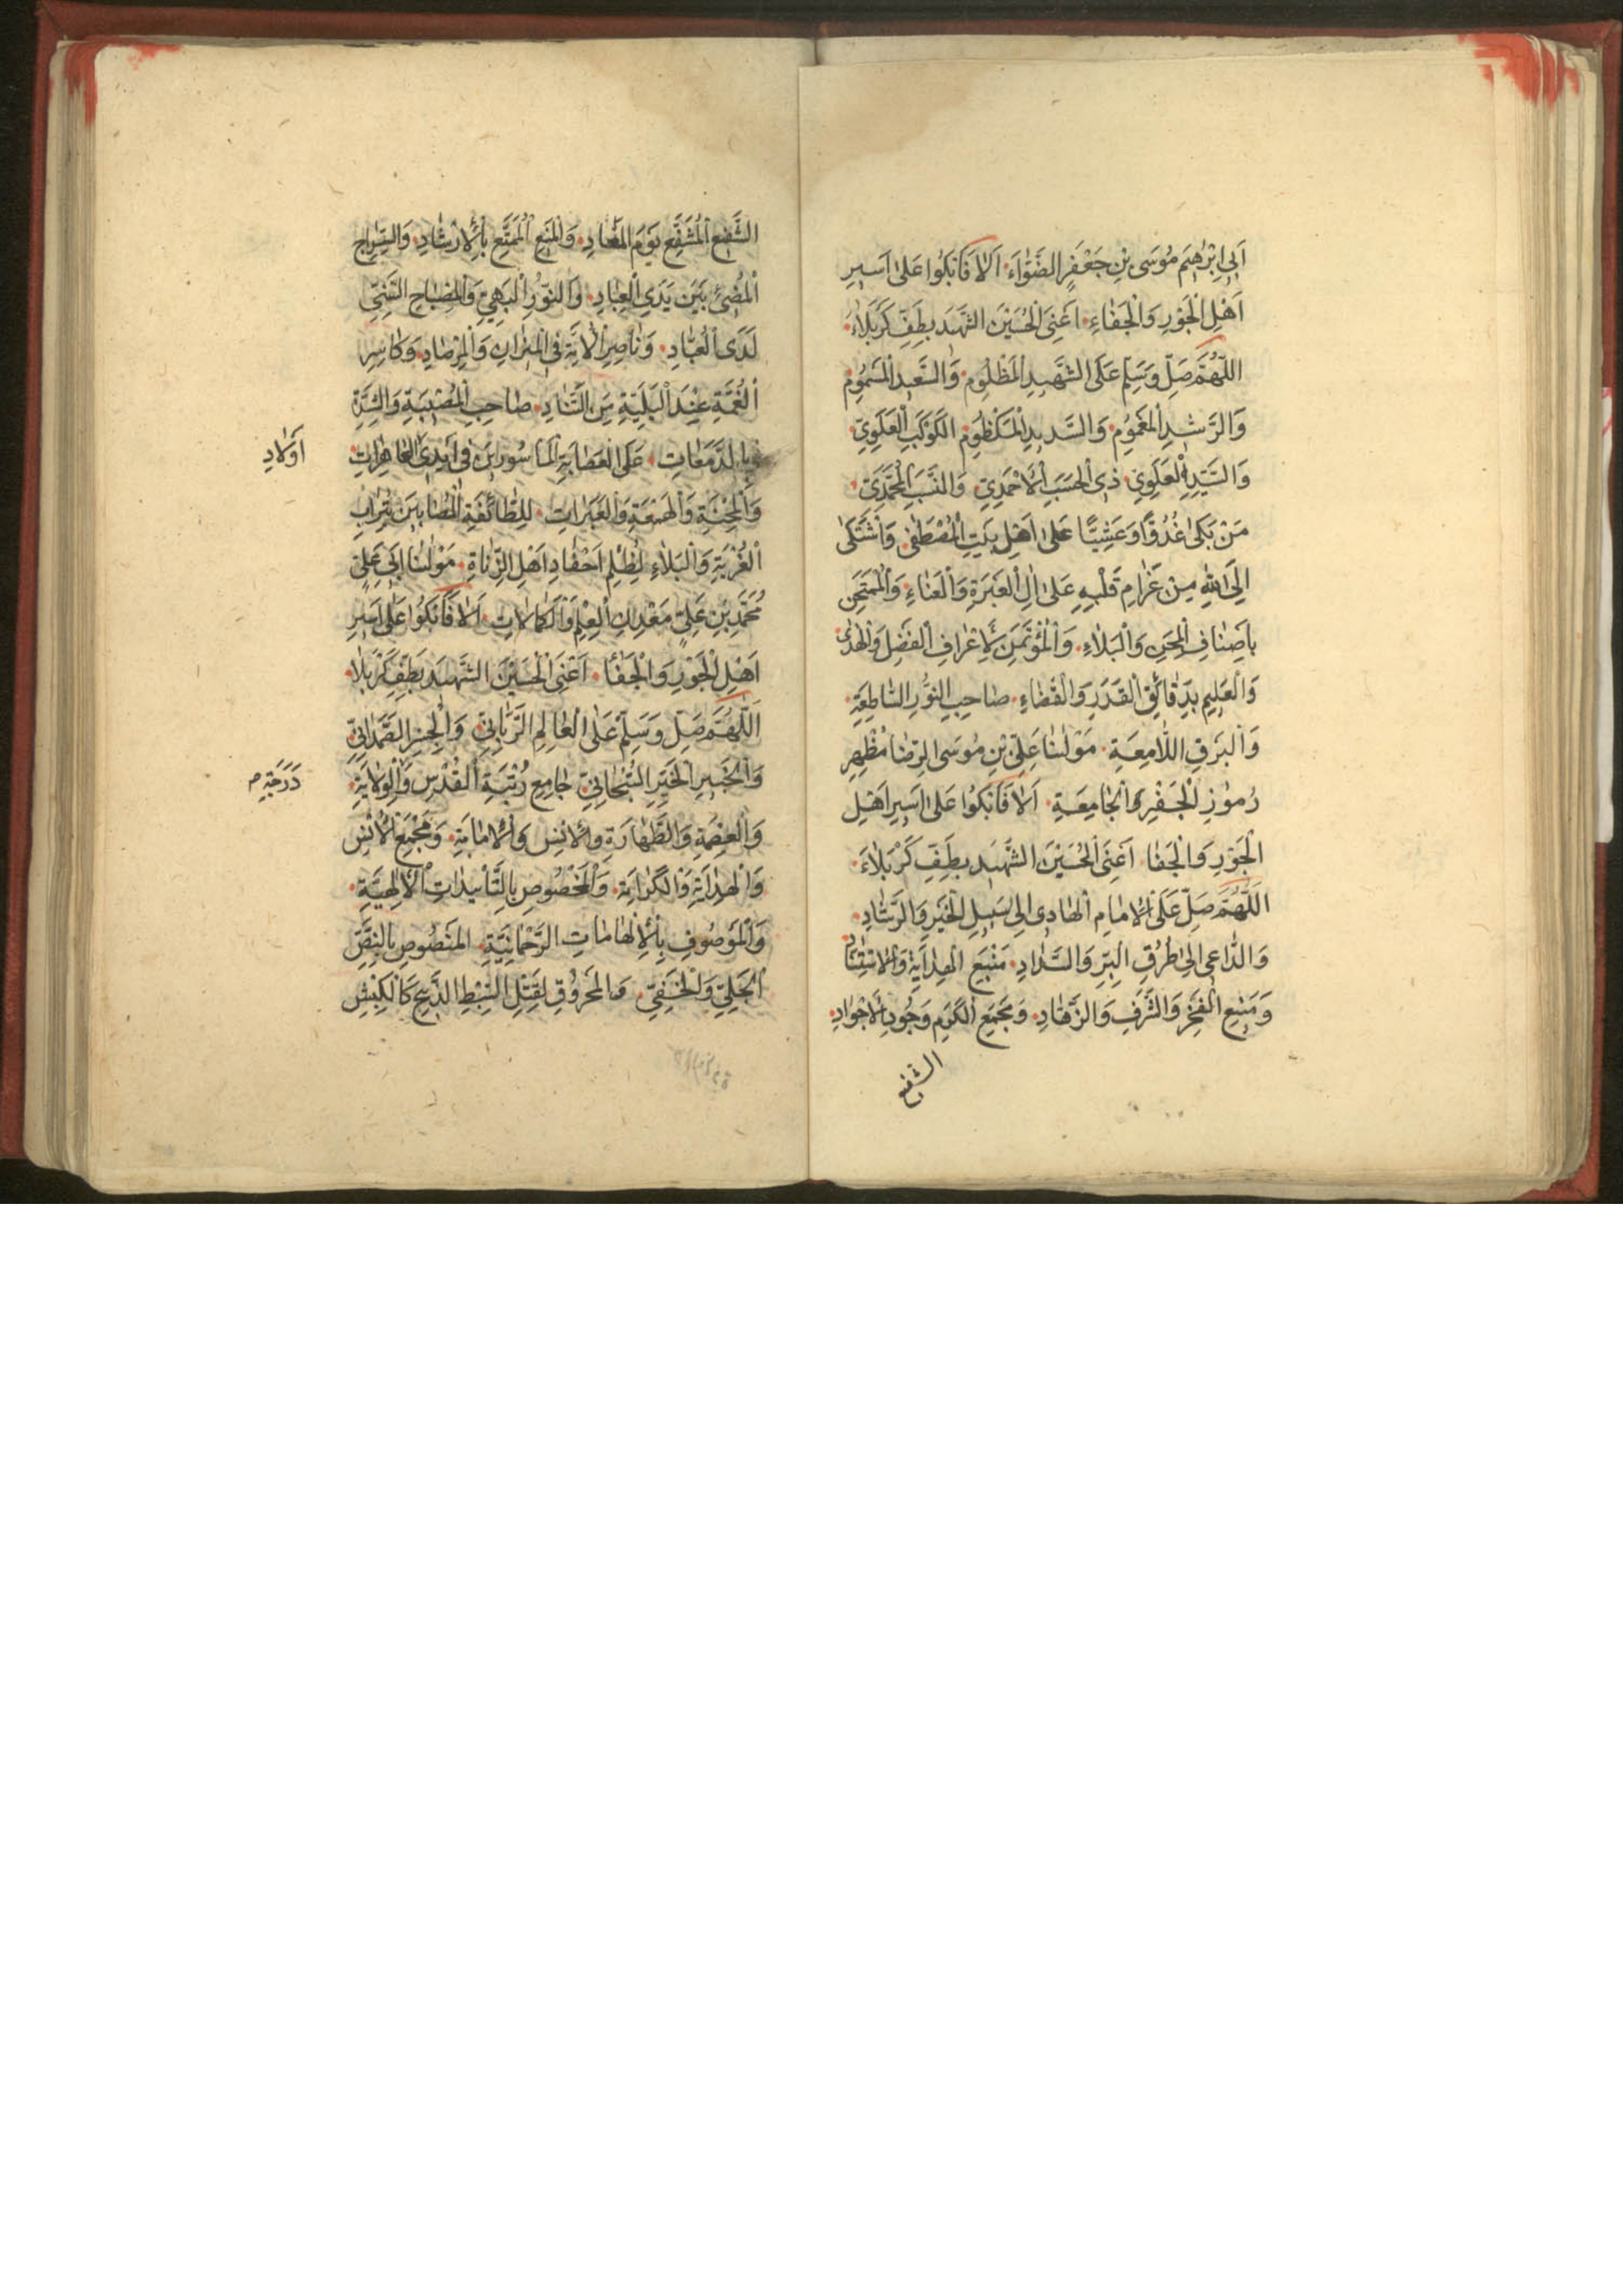 اَبِي اِبْرٰهِيمَ مُوسَى بْنِ جَعْفَرٍ الصَّفْوَاءِ اَلَا فَابْكُوا عَلَى اَسِيرِ
اَهْلِ الْجَوْرِ وَالْجَفَاءِ اَعْنِي الْحُسَيْنَ الشَّهِيدَ بِطَفِّ كَرْبَلَاءَ
اللّٰهُمَّ صَلِّ وَسَلِّمْ عَلَى الشَّهِيدِ الْمَظْلُومِ وَالسَّعِيدِ الْمَسْمُومِ
وَالرَّشِيدِ الْمَغْمُومِ وَالسَّدِيدِ الْمَكْظُومِ الكَوْكَبِ الْعَلَوِيِّ
وَالسَّيِّدِ الْعَلَوِيِّ ذِي الْحَسَبِ الْاَحْمَدِيِّ وَالنَّسَبِ الْمُحَمَّدِيِّ
مَنْ بَكَى غُدُوًّا وَعَشِيًّا عَلَى اَهْلِ بَيْتِ الْمُصْطَفٰى وَاشْتَكٰى
اِلَى اللّٰهِ مِنْ غَرَامِ قَلْبِهِ عَلَى اٰلِ الْعَبْرَةِ وَالْعَنَاءِ وَالْمُمْتَحَنِ
بِاَصْنَافِ الْمِحَنِ وَالْبَلَاءِ وَالْمُؤْتَمَنِ لِاَعْرَافِ الْفَضْلِ وَالْهُدٰى
وَالْعَلِيمِ بِدَقَائِقِ الْقَدَرِ وَالْقَضَاءِ صَاحِبِ النُّورِ السَّاطِعَةِ
وَالْبَرْقِ اللَّامِعَةِ مَوْلٰنَا عَلِيِّ بْنِ مُوسَى الرِّضَا مُظْهِرِ
رُمُوزِ الْجَفْرِ وَالْجَامِعَةِ اَلَا فَابْكُوا عَلَى اَسِيرِ اَهْلِ
الْجَوْرِ وَالْجَفَا اَعْنِي الْحُسَيْنَ الشَّهِيدَ بِطَفِّ كَرْبَلَاءَ
اَللّٰهُمَّ صَلِّ عَلَى الْاِمَامِ الْهَادِي اِلَى سَبِيلِ الْخَيْرِ وَالرَّشَادِ
وَالدَّاعِي اِلَى طُرُقِ الْبِرِّ وَالسَّدَادِ مَنْبَعِ الْهِدَايَةِ
وَمَنْبَعِ الْفَخْرِ وَالشَّرَفِ وَالزَّهَادِ وَمَجْمَعِ الْكَرَمِ وَجُودِ الْاَجْوَادِ
الشفيع
الشَّفِيعِ الْمُشَفَّعِ يَوْمَ الْمَعَادِ وَالْمَنِيعِ الْمُمَتَّعِ بِالْاِرْشَادِ وَالسِّرَاجِ
الْمُضِيءِ بَيْنَ يَدَيِ الْعِبَادِ وَالنُّورِ الْبَهِيِّ وَالْمِصْبَاحِ السَّنِيِّ
لَدَى الْعُبَّادِ وَنَاصِرِ الْاُمَّةِ فِي الْمِيزَانِ وَالْمِرْصَادِ وَكَاسِرِ
الْغُمَّةِ عِنْدَ الْبَلِيَّةِ التَّنَادِ صَاحِبِ الْمُصِيبَةِ وَالشِّدَّةِ
بِالدَّمَعَاتِ عَلَى الْعِصَابَةِ الْمَاْسُورِينَ فِي اَيْدِي الْعَاهِرَاتِ
اَوْلَادِ
وَالْمِحْنَةِ وَالْهَمْعَةِ وَالْعَبَرَاتِ لِلطَّائِفَةِ الْمُصَابِينَ بِتُرَابِ
الْغُرْبَةِ وَالْبَلَاءِ لِظُلْمِ اَحْفَادِ اَهْلِ الزِّنَاةِ مَوْلٰنَا اَبِي عَلِيٍّ
مُحَمَّدِ بْنِ عَلِيٍّ مَعْدِنِ الْعِلْمِ وَالْكَمَالَاتِ اَلَا فَابْكُوا عَلَى اَسِيرِ
اَهْلِ الْجَوْرِ وَالْجَفَا اَعْنِي الْحُسَيْنَ الشَّهِيدَ بِطَفِّ كَرْبَلَا
اللّٰهُمَّ صَلِّ وَسَلِّمْ عَلَى الْعَالِمِ الرَّبَّانِيِّ وَالْحِبْرِ الصَّمَدَانِيِّ
وَالْخَبِيرِ الْخَيِّرِ السُّبْحَانِيِّ جَامِعِ رُتْبَةِ الْقُدْسِ وَالْوِلَايَةِ
دَرَجَةِ م
وَالْعِصْمَةِ وَالطَّهَارَةِ وَالْاُنْسِ وَالْاِمَامَةِ وَمَجْمَعِ الْاُنْسِ
وَالْهِدَايَةِ وَالْكَرَامَةِ وَالْمَخْصُوصِ بِالتَّأْيِيدَاتِ الْاِلٰهِيَّةِ
وَالْمَوْصُوفِ بِالْاِلْهَامَاتِ الرَّحْمَانِيَّةِ الْمَنْصُوصِ بِالنَّصِّ
الْجَلِيِّ وَالْخَفِيِّ وَالْمَحْرُوقِ لِقَتْلِ السِّبْطِ الذَّبِيحِ كَالْكَبْشِ